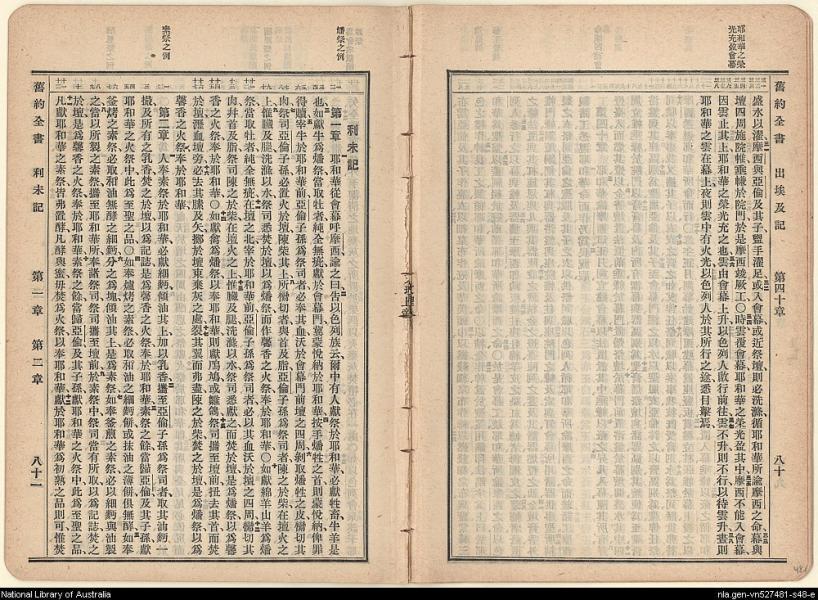 舊約全書 出埃及記 第四十章 八十
耶和華之榮
光充會幕
盛水以濯摩西與亞倫及其子盥手濯足或入會幕或近祭壇則必洗滌循耶和華所諭摩西之命幕與
壇四周施院帷於院門於是摩西竣厥工〇時雲覆會幕耶和華之榮光盈其中摩西不能入會幕
因雲止其上耶和華之榮光充之也雲由會幕上升以色列人啟行前往雲不升則不行以待雲升晝則
耶和華之雲在幕上夜則雲中有火光以色列人於其所行之途悉目擊焉
燔祭之例
素祭之例
利未記
第一章 耶和華從會幕呼摩西諭之曰告以色列族云爾中有人獻祭於耶和華必獻牲畜牛羊是
也如獻牛為燔祭當取牡者純全無疵獻於會幕門冀蒙悅納於耶和華按手燔牲之首則蒙悅納俾罪
得贖宰牛於耶和華前亞倫子孫為祭司者必奉其血沃於會幕門前壇之四周剝取燔牲之皮臠切其
肉祭司亞倫子孫必置火於壇陳柴其上所臠切者與首及脂亞倫子孫為祭司者陳之於柴在壇火之
上惟臟及腿洗滌以水祭司悉焚於壇以為燔祭而作馨香之火祭奉於耶和華〇如獻綿羊山羊為燔
祭當取牡者純全無疵在壇之北宰於耶和華前亞倫子孫為祭司者必以其血沃於壇之四周臠切其
肉並首及脂祭司陳之於柴在壇火之上惟臟及腿洗滌以水祭司悉獻之而焚於壇是為燔祭以為馨
香之火祭奉於耶和華〇如獻禽為燔祭奉耶和華則獻鳲鳩或雛鴿祭司攜至壇前扭去其首而焚
於壇瀝血壇旁必去其膆及矢擲於壇東棄灰之處裂其翼而弗斷陳之於柴焚之於壇是為燔祭以為
馨香之火祭奉於耶和華
第二章 人奉素祭於耶和華必獻細麪傾油其上加以乳香攜至亞倫子孫為祭司者取其油麪一
撮及所有之乳香焚之於壇以為記誌是為馨香之火祭奉於耶和華素祭之餘當歸亞倫及其子孫獻
耶和華之火祭中此為至聖之品〇如奉爐烤之素祭必取和油之細麪餅或抹油之薄餅俱無酵如奉
釜烤之素祭必取和油無酵之細麪分之為塊傾油其上是為素祭如奉釜煎之素祭必用細麪與油製
之當以所製之素祭攜至耶和華所奉諸祭司祭司攜至壇前於素祭中祭司當有所取以為記誌焚之
於壇是為馨香之火祭奉於耶和華素祭之餘當歸亞倫及其子孫獻耶和華之火祭中此為至聖之品
凡獻耶和華之素祭皆弗置酵凡酵與蜜毋焚為火祭以奉耶和華獻於耶和華為初熟之品則可惟焚
舊約全書 利未記 第一章 第二章 八十一
National Library of Australia
nla.gen-vn527481-s48-e